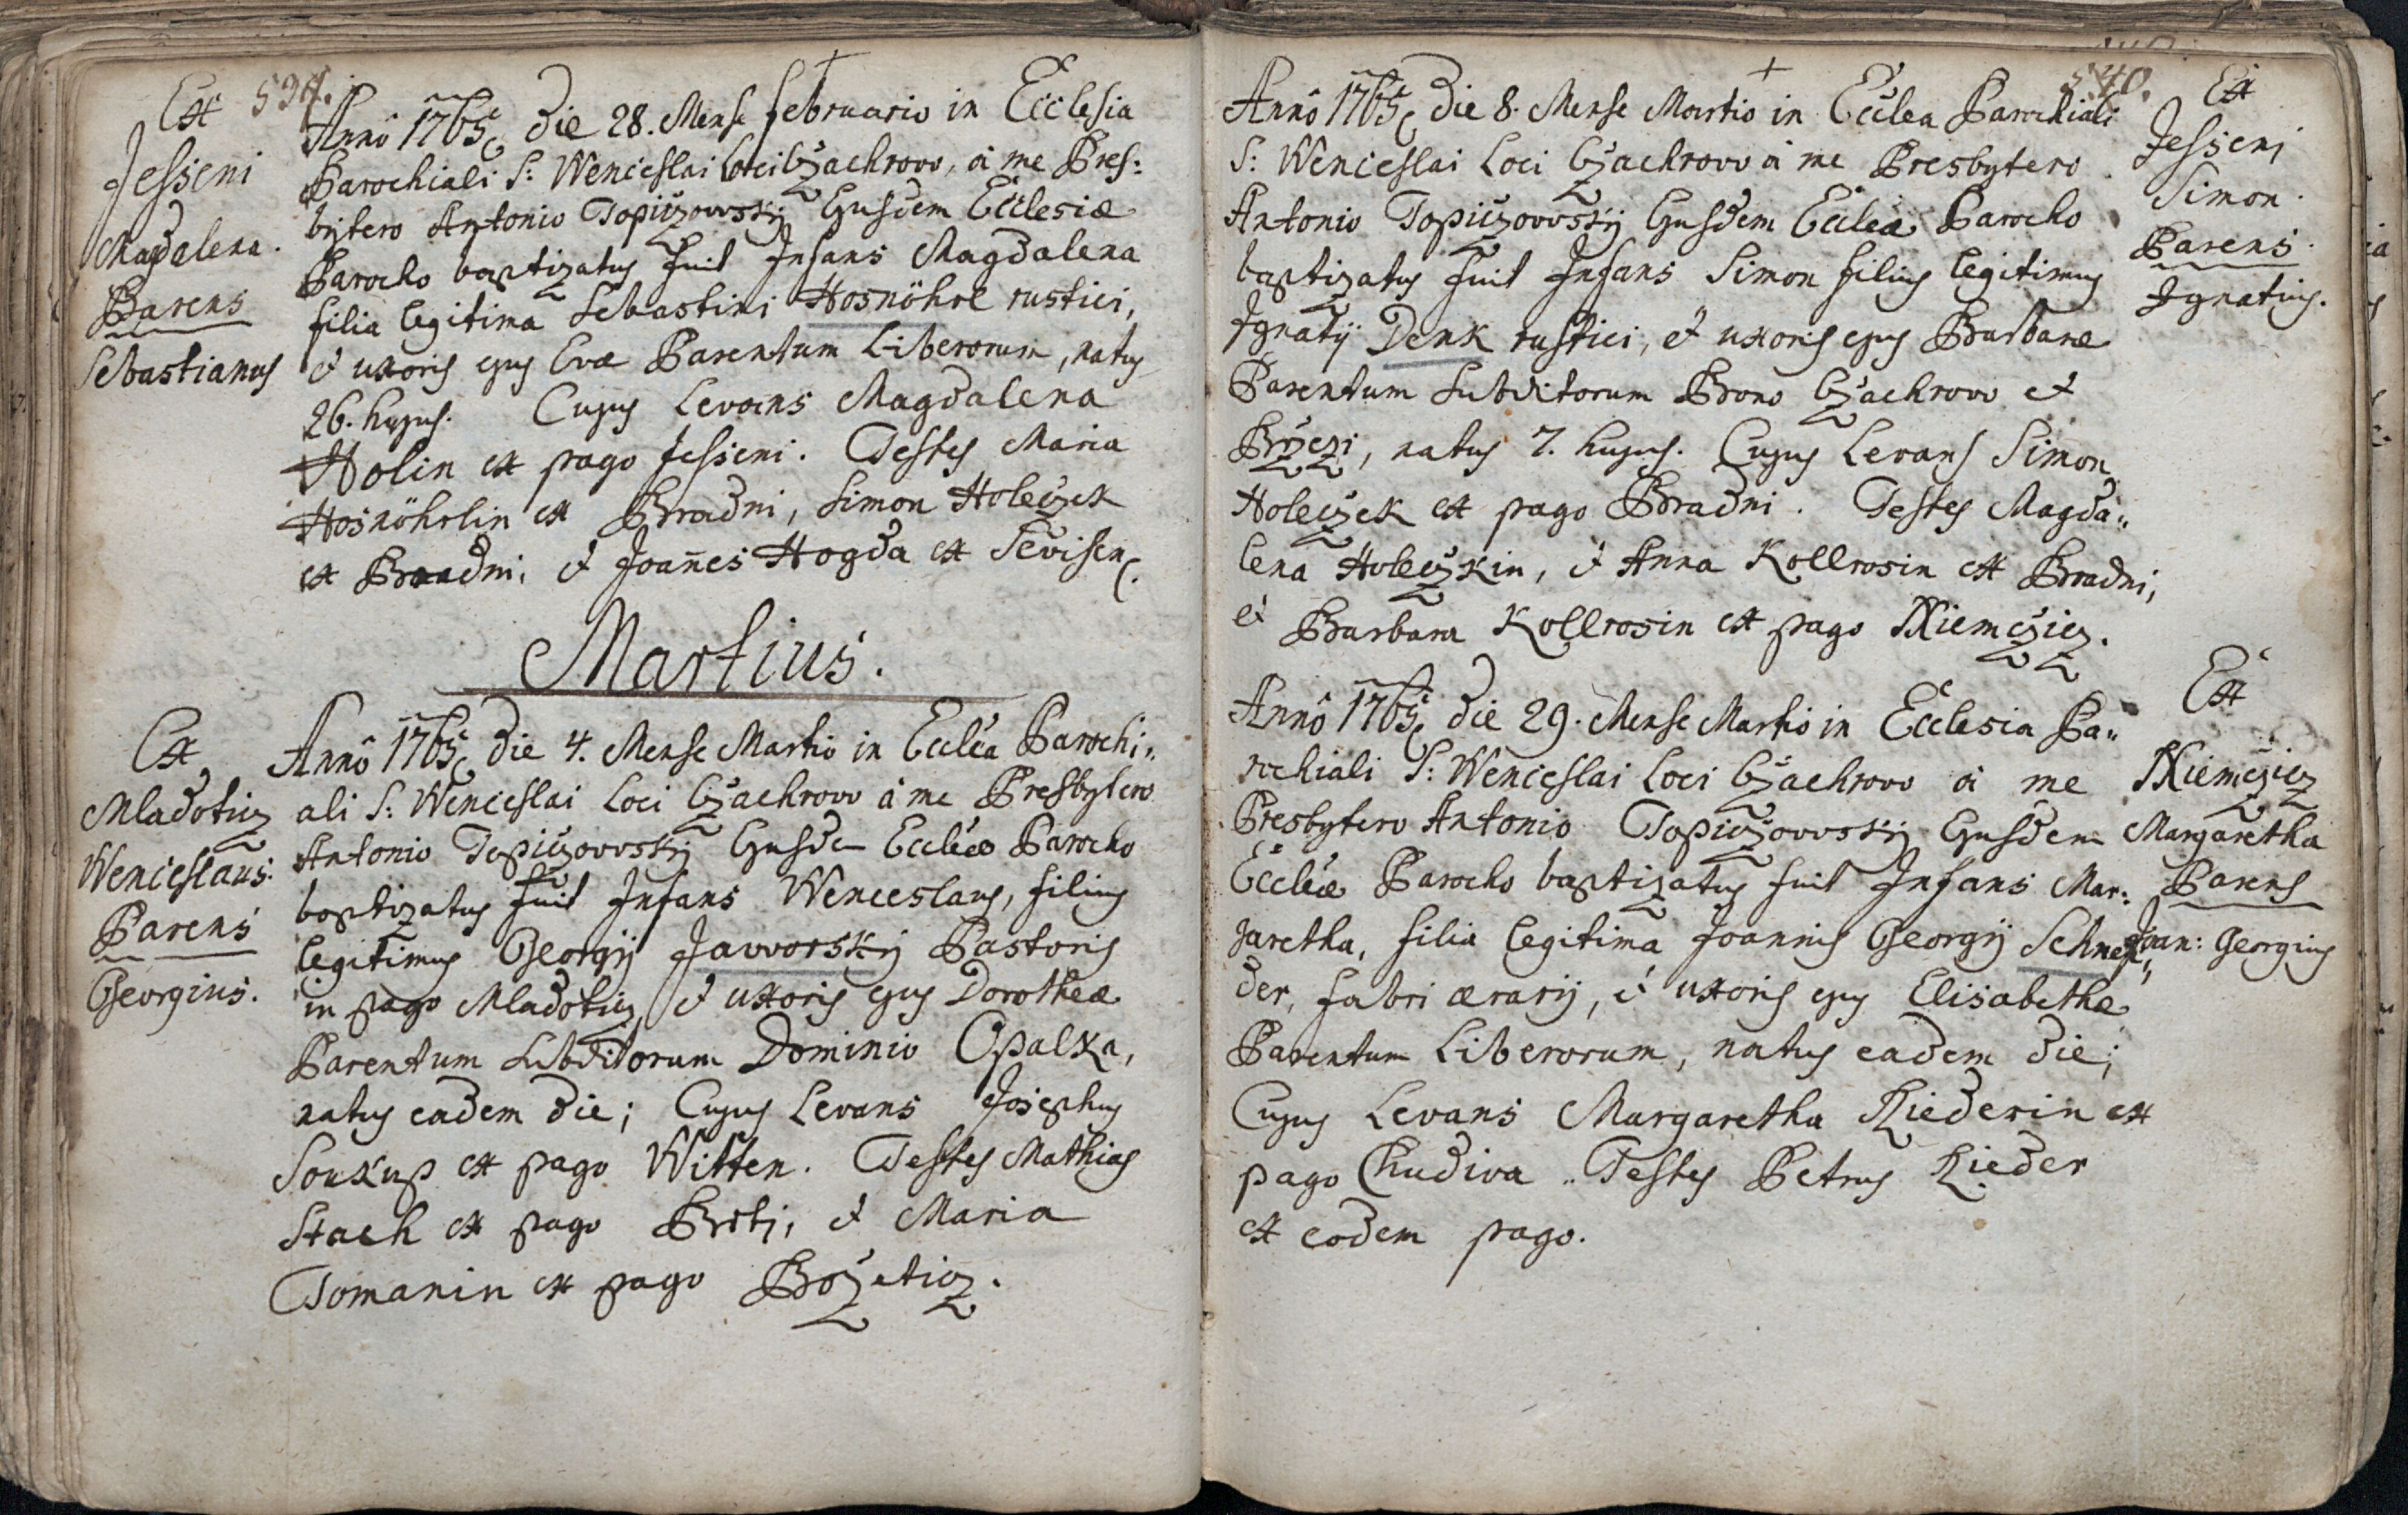 Ex
Jesseni
Magdalena.
Parens
Sebastianus
Anno 1765, die 28. Mense Februario in Ecclesia
Parochiali S: Wenceslai Loci Cžachrow, à me Pres:
bytero Antonio Topicžowskij Ejusdem Ecclesiæ
Parocho baptizatus fuit Infans Magdalena
filia legitima Sebastini Hosnöhrl rustici,
et uxoris ejus Evæ Parentum Liberorum, natus
26. hujus. Cujus Levans Magdalena
Holin ex pago Jesseni. Testes Maria
Hosnöhrlin ex Bradni, Simon Holeczek
ex Bradni, et Joannes Hogda ex Sevisen.
Martius.
Ex
Mladoticz
Wenceslaus.
Parens
Georgius.
Anno 1765, die 4. Mense Martio in Ecclea Parochi„
ali S: Wenceslai Loci Cžachrow à me Presbytero
Antonio Topicžowskij Ejusde Eccleæ Parocho
baptizatus fuit Infans Wenceslaus, filius
legitimus Georgij Jaworskij Pastoris
in pago Mladoticz, et uxoris ejus Dorotheæ
Parentum Subditorum Dominio Opalka,
natus eadem die; Cujus Levans Josephus
Soukup ex pago Witten. Testes Mathias
Stach ex pago Brtj, et Maria
Tomanin ex pago Božeticz.
540.
Anno 1765, die 8. Mense Martio in Ecclea Parochiali
S: Wenceslai Loci Cžachrow à me Presbytero
Antonio Topicžowskij Ejusdem Eccleæ Parocho
baptizatus fuit Infans Simon filius legitimus
Ignatij Denk rustici, et uxoris ejus Barbaræ
Parentum Subditorum Bono Cžachrow et
Bržezi, natus 7. hujus. Cujus Levans Simon
Holeczek ex pago Bradni. Testes Magda„
lena Holeczkin, et Anna Kollrosin ex Bradni,
et Barbara Kollrosin ex pago Niemcžicz.
Ex
Jesseni
Simon.
Parens.
Ignatius.
Anno 1765, die 29. Mense Martio in Ecclesia Pa„
rochiali S: Wenceslai Loci Cžachrow à me
Presbytero Antonio Topicžowskij Ejusdem
Eccleæ Parocho baptizatus fuit Infans Mar:
garetha, filia legitima Joannis Georgij Schnei„
der, fabri ærarij, et uxoris ejus Elisabethæ
Parentum Liberorum, natus eadem die;
Cujus Levans Margaretha Riederin ex
pago Chudiva. Testes Petrus Rieder
ex eodem pago.
Ex
Niemcžicz
Margaretha
Parens
Joan: Georgius